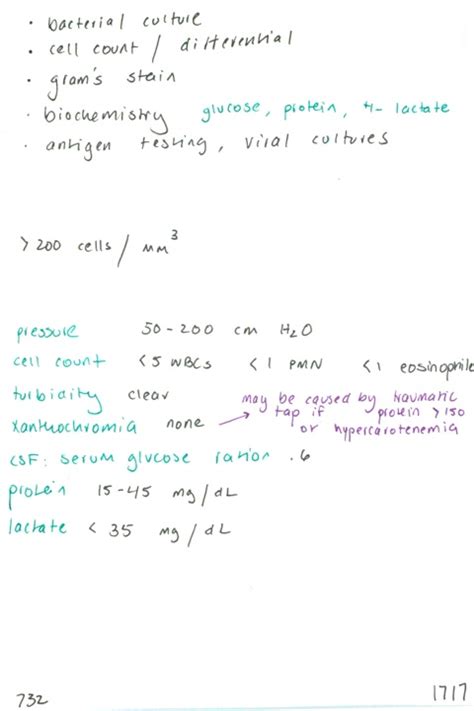 · bacterial culture
· cell count / differential
· gram's stain
· biochemistry glucose, protein, +- lactate
· antigen testing, viral cultures
> 200 cells / mm³
pressure 50-200 cm H₂O
cell count <5 WBCs <1 PMN <1 eosinophile
turbidity clear
xanthochromia none → may be caused by traumatic
tap if protein > 150
or hypercarotenemia
CSF: serum glucose ration .6
protein 15-45 mg/dL
lactate < 35 mg/dL
732
1717